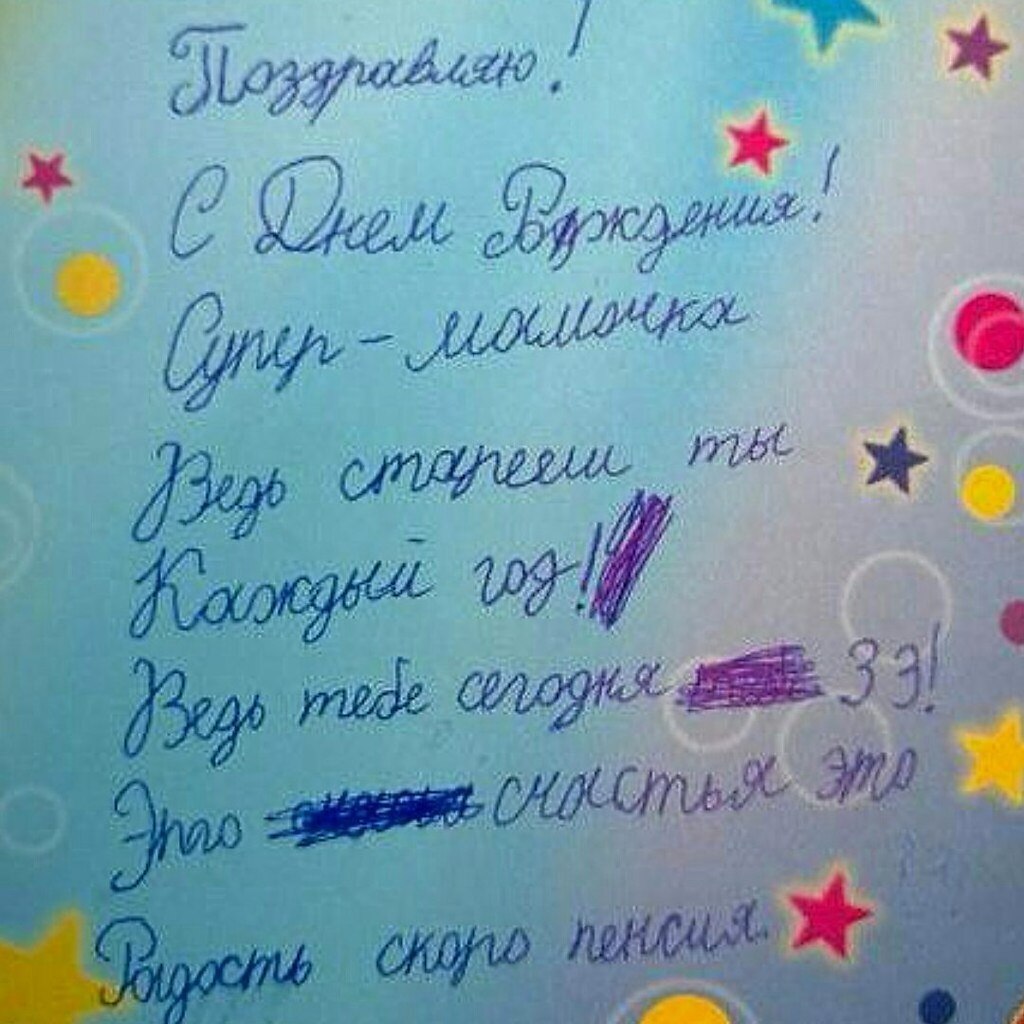 Поздравляю!
С Днем Рождения!
Супер - мамочка
Ведь старееш ты
Каждый год!
Ведь тебе сегодня 39!
Это счастья это
Радость скоро пенсия.